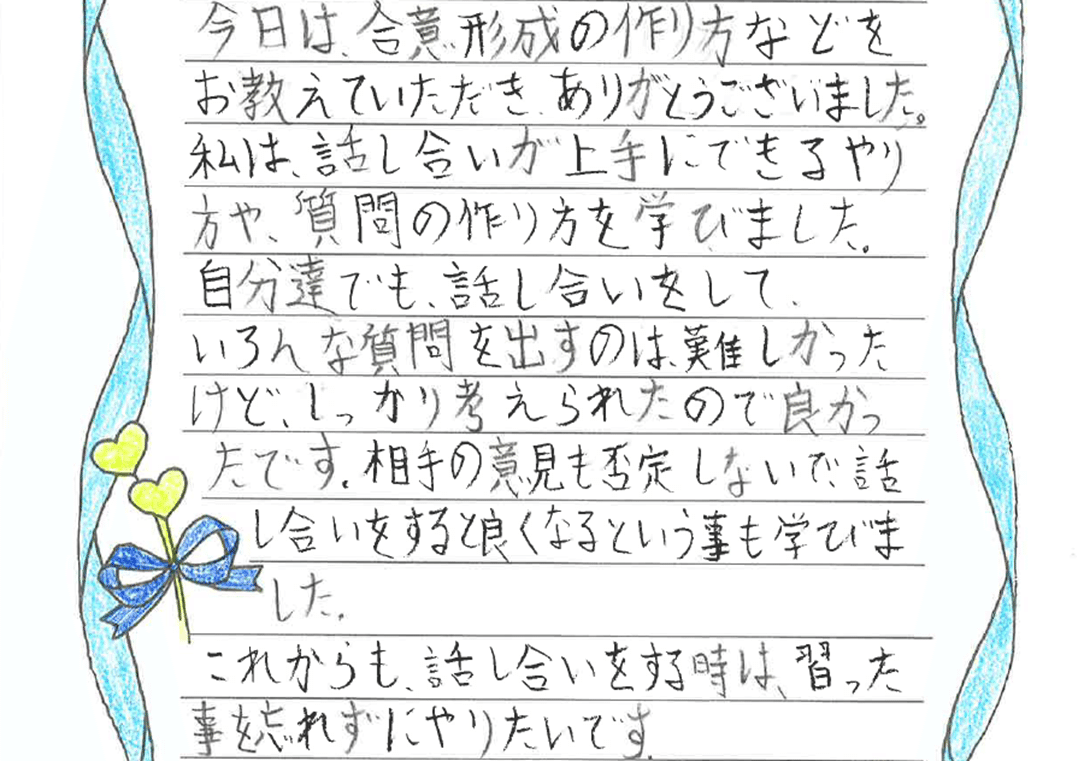 今日は、合意形成の作り方などを
お教えていただき、ありがとうございました。
私は、話し合いが上手にできるやり
方や、質問の作り方を学びました。
自分達でも、話し合いをして、
いろんな質問を出すのは、難しかった
けど、しっかり考えられたので良かっ
たです。相手の意見も否定しないで、話
し合いをすると良くなるという事も学びま
した。
これからも、話し合いをする時は、習った
事を忘れずにやりたいです。